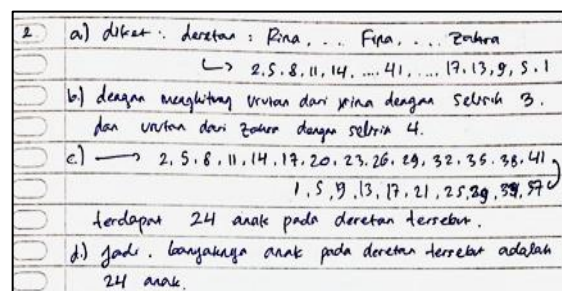 2 a) diket : deretan : Rina, ... Fina, ... Zahra
↳ 2, 5, 8, 11, 14, .... 41, .... 17, 13, 9, 5, 1
b.) dengan menghitung urutan dari rina dengan selisih 3.
dan urutan dari zahra dengan selisih 4.
c.) → 2, 5, 8, 11, 14, 17, 20, 23, 26, 29, 32, 35, 38, 41
1, 5, 9, 13, 17, 21, 25, 29, 33, 37
terdapat 24 anak pada deretan tersebut.
d.) Jadi, banyaknya anak pada deretan tersebut adalah
24 anak.